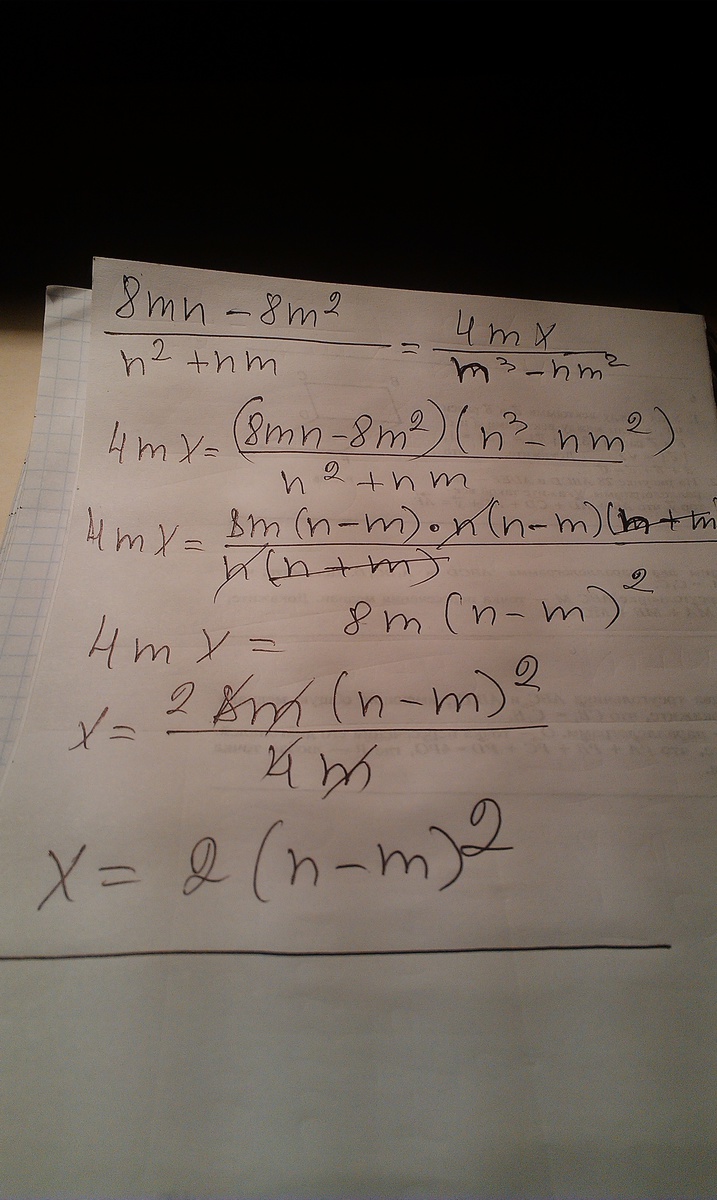 8mn - 8m² / n² + nm = 4mx / n³ - nm²
4mx = (8mn - 8m²)(n³ - nm²) / n² + nm
4mx = 8m(n-m)·n(n-m)(n+m / n(n+m)
4mx = 8m(n-m)²
x = 2 8m(n-m)² / 4m
x = 2(n-m)²